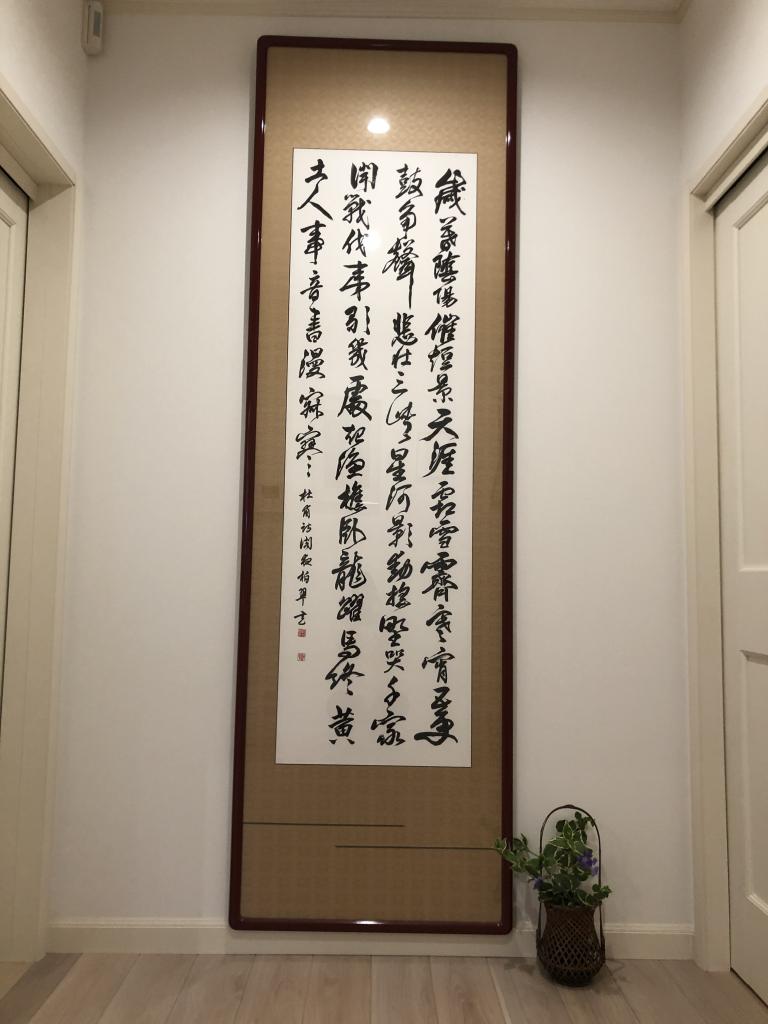 歳暮陰陽催短景天涯霜雪霽寒宵五更
鼓角聲悲壮三峽星河影動搖野哭千家
聞戰伐夷歌幾處起漁樵臥龍躍馬終黄
土人事音書漫寂寥 杜甫詩閣夜 柏翠書